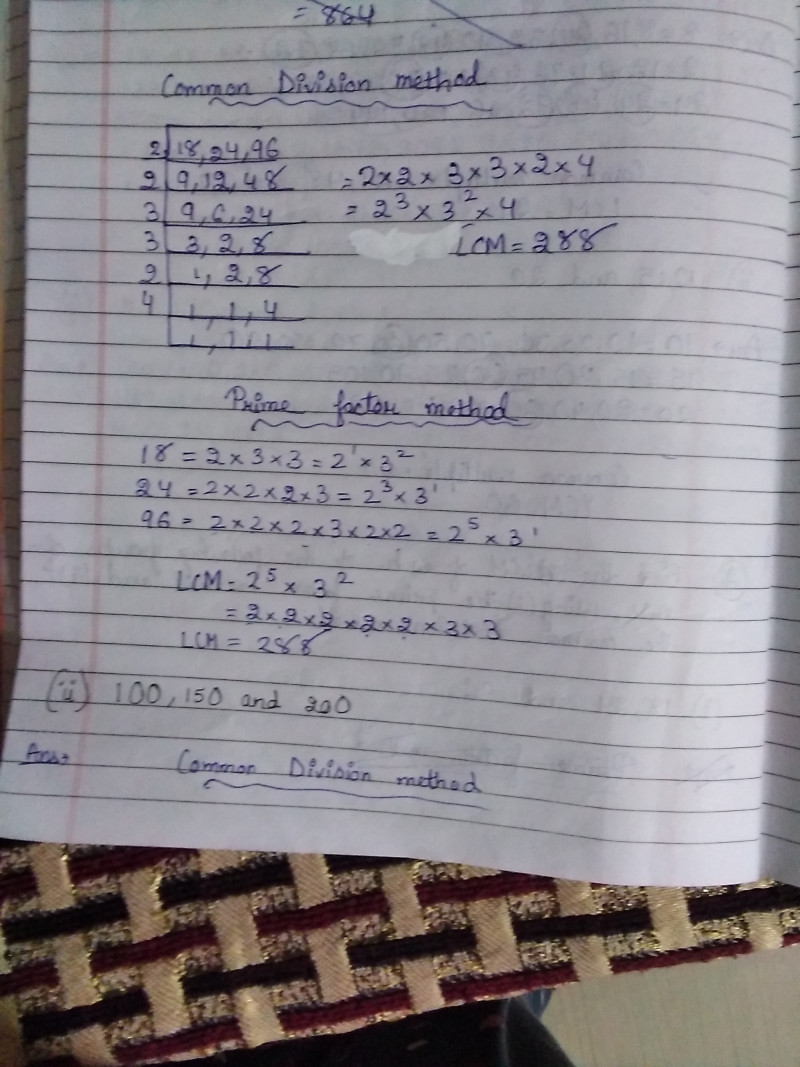 = 864
Common Division method
2 | 18, 24, 96
2 | 9, 12, 48 = 2 × 2 × 3 × 3 × 2 × 4
3 | 9, 6, 24 = 2³ × 3² × 4
3 | 3, 2, 8 LCM = 288
2 | 1, 2, 8
4 | 1, 1, 4
1, 1, 1
Prime factor method
18 = 2 × 3 × 3 = 2¹ × 3²
24 = 2 × 2 × 2 × 3 = 2³ × 3¹
96 = 2 × 2 × 2 × 3 × 2 × 2 = 2⁵ × 3¹
LCM = 2⁵ × 3²
= 2 × 2 × 2 × 2 × 2 × 3 × 3
LCM = 288
(ii) 100, 150 and 200
Ans→ Common Division method